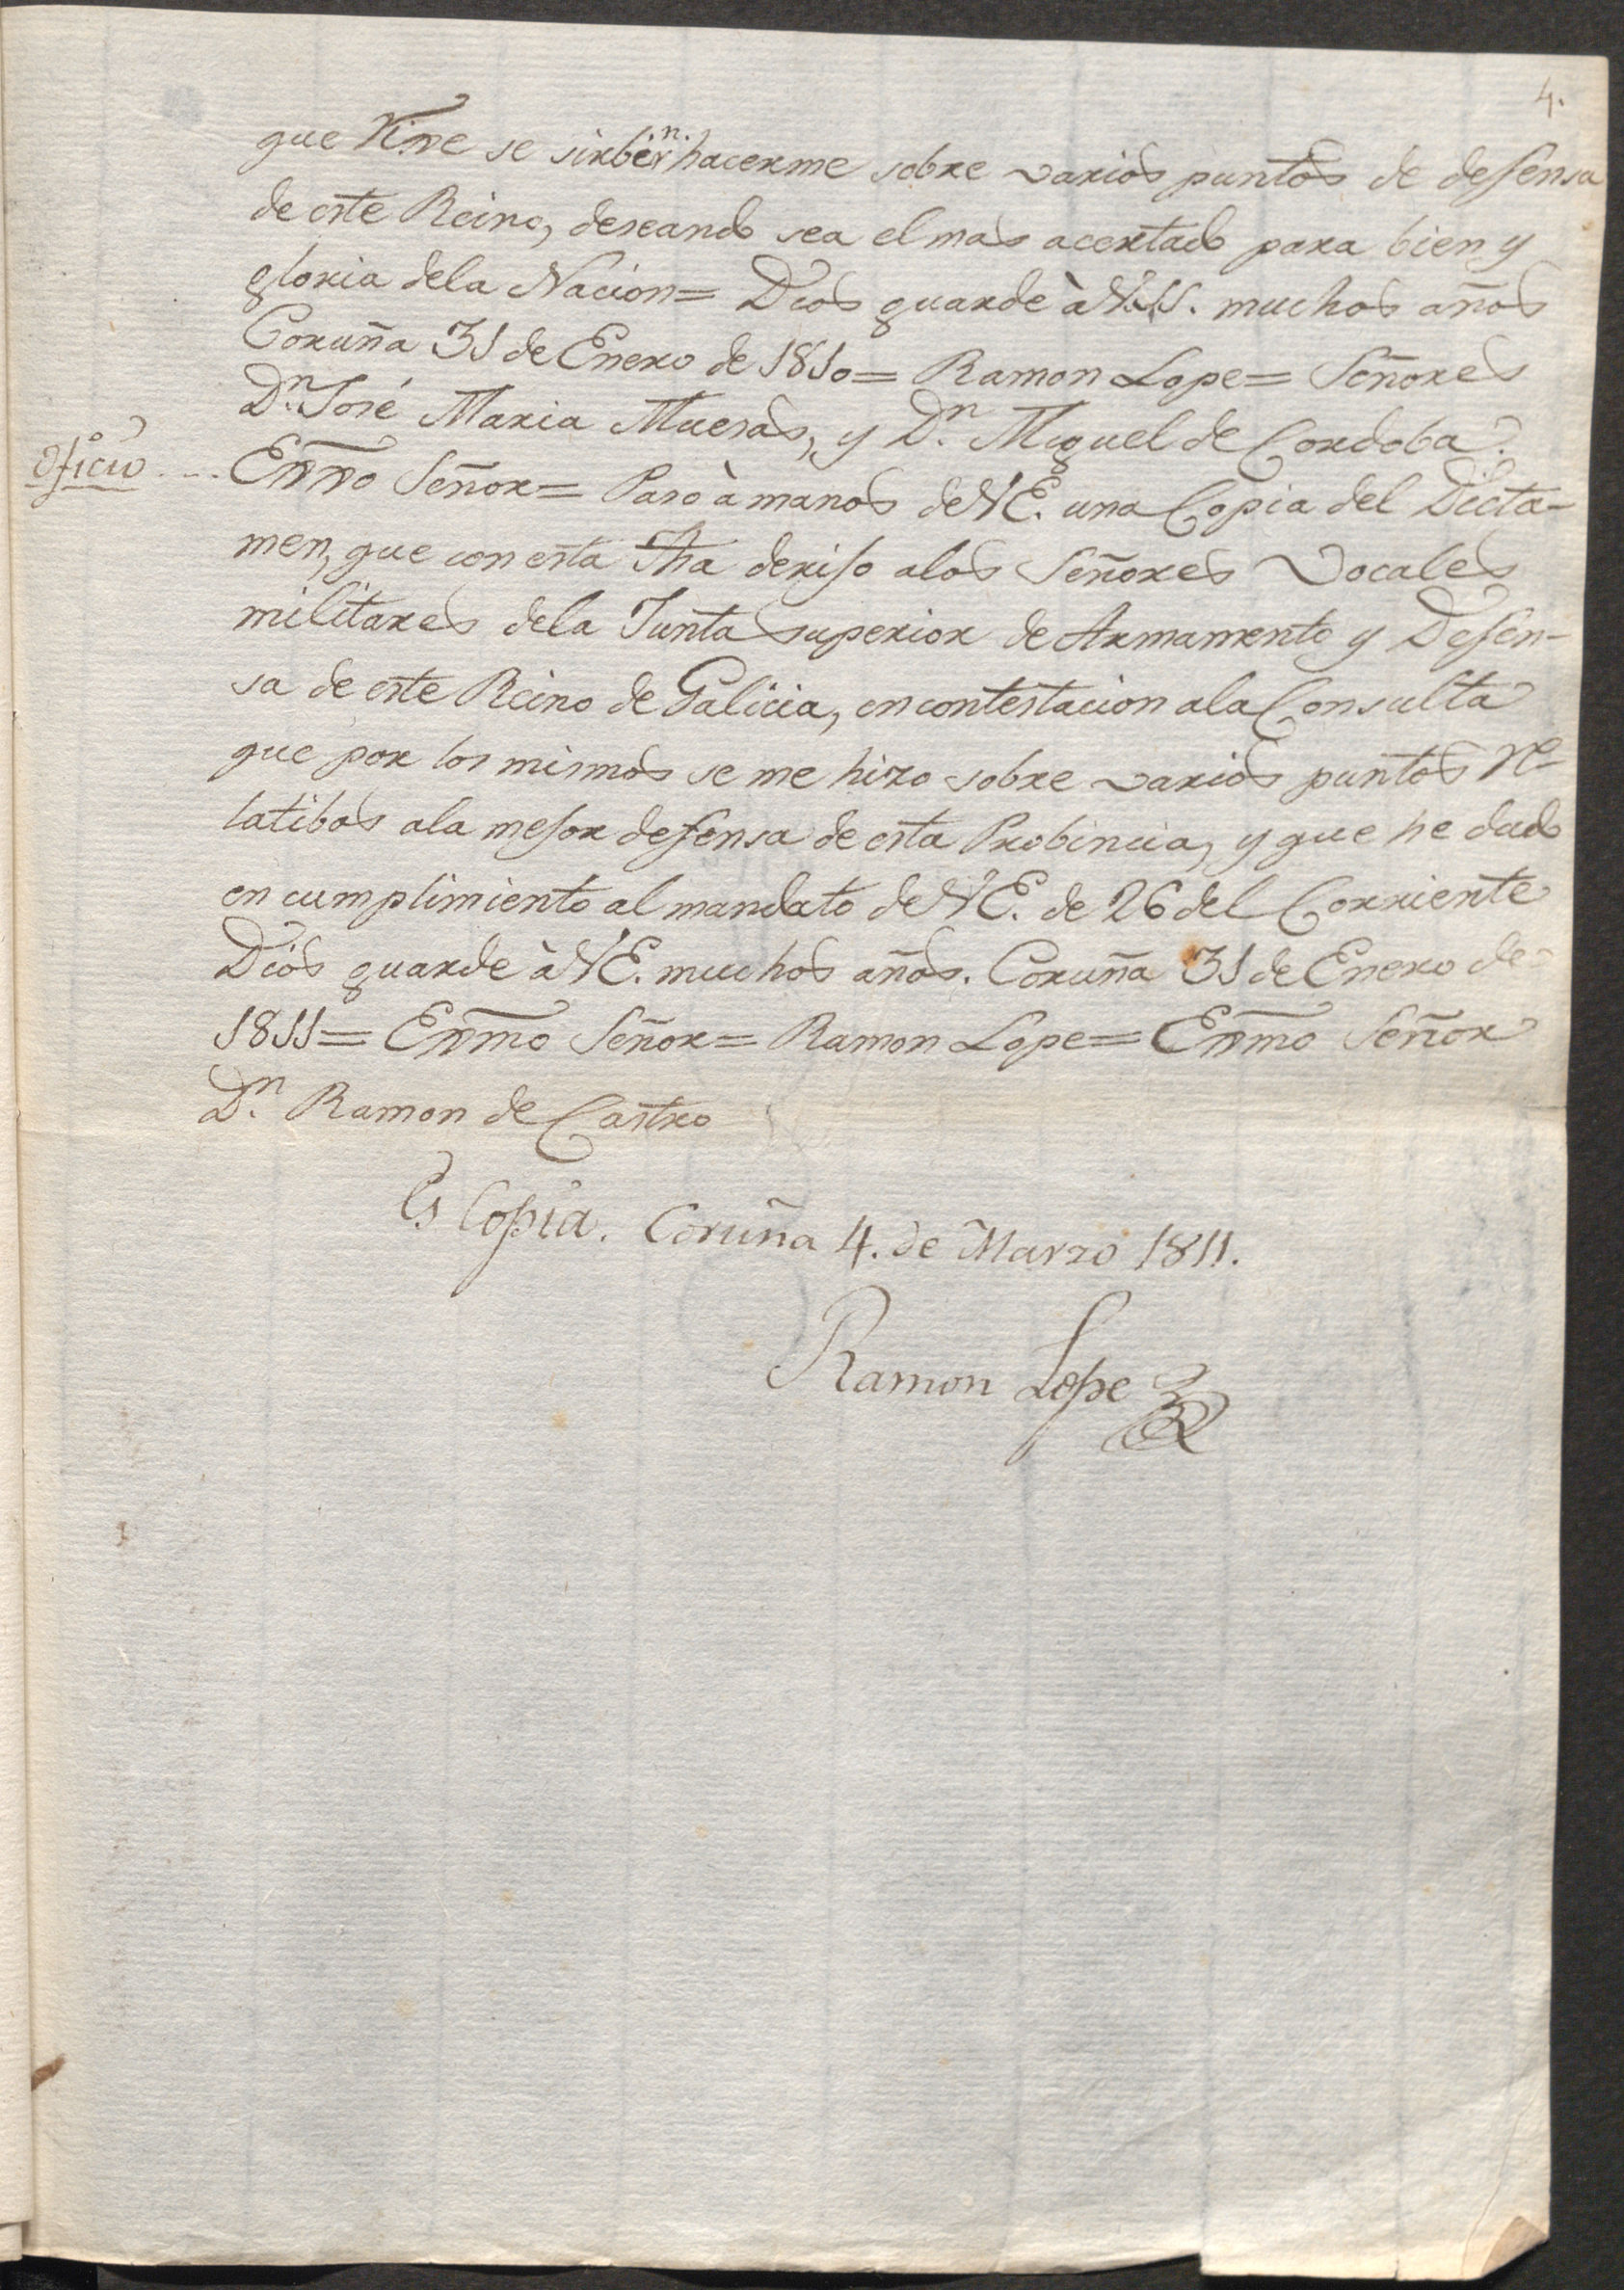 4.
que Vms se sirbiern. hacerme sobre varios puntos de defensa
de este Reino, deseando sea el mas acertado para bien y
gloria dela Nacion= Dios guarde à V.SS. muchos años
Coruña 31 de Enero de 1810= Ramon Lope= Señores
Dn. José Maria Mueras, y Dn. Miguel de Cordoba.
Oficio.... Exmo Señor= Paso à manos de VE. una Copia del Dicta-
men, que con esta fha dirijo alos Señores Vocales
militares dela Junta superior de Armamento y Defen-
sa de este Reino de Galicia, en contestacion ala Consulta
que por los mismos se me hizo sobre varios puntos re-
latibos ala mejor defensa de esta Probincia, y que he dado
en cumplimiento al mandato de VE. de 26 del Corriente
Dios guarde à VE. muchos años. Coruña 31 de Enero de
1811= Exmo Señor= Ramon Lope= Exmo Señor
Dn. Ramon de Castro
Es Copia. Coruña 4. de Marzo 1811.
Ramon Lope